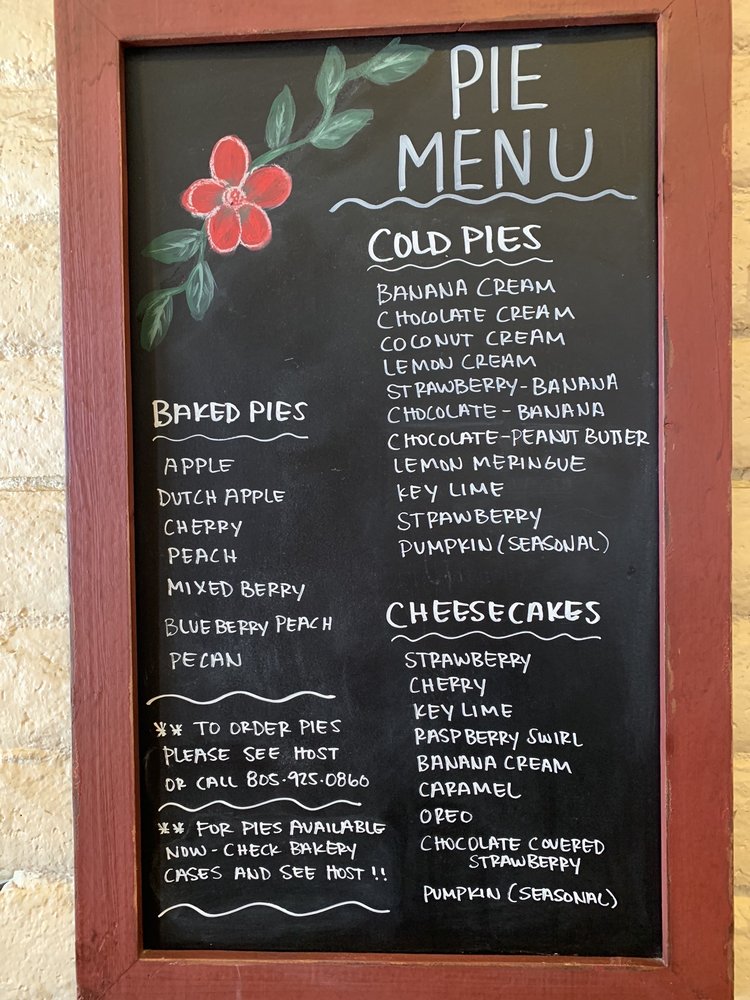 PIE
MENU
COLD PIES
BANANA CREAM
CHOCOLATE CREAM
COCONUT CREAM
LEMON CREAM
STRAWBERRY-BANANA
CHOCOLATE-BANANA
CHOCOLATE-PEANUT BUTTER
LEMON MERINGUE
KEY LIME
STRAWBERRY
PUMPKIN (SEASONAL)
BAKED PIES
APPLE
DUTCH APPLE
CHERRY
PEACH
MIXED BERRY
BLUEBERRY PEACH
PECAN
** TO ORDER PIES
PLEASE SEE HOST
OR CALL 805.925.0860
** FOR PIES AVAILABLE
NOW - CHECK BAKERY
CASES AND SEE HOST!!
CHEESECAKES
STRAWBERRY
CHERRY
KEY LIME
RASPBERRY SWIRL
BANANA CREAM
CARAMEL
OREO
CHOCOLATE COVERED
STRAWBERRY
PUMPKIN (SEASONAL)